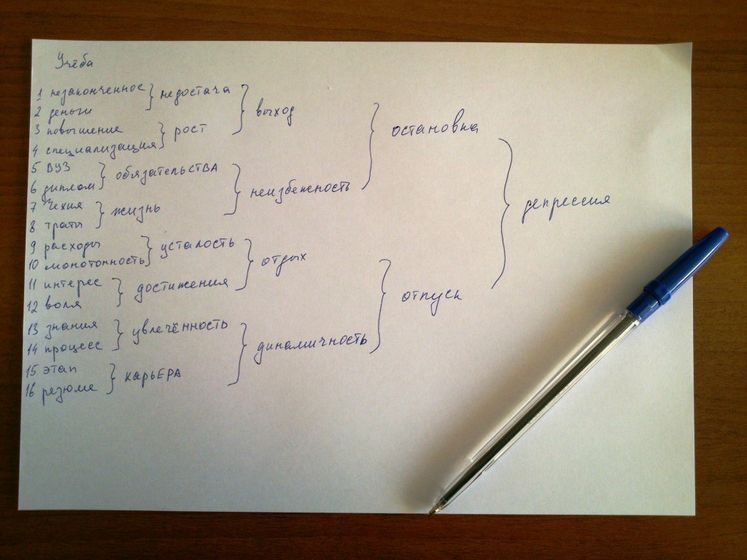 Учёба
1 незаконченное
недостача
2 деньги
выход
3 повышение
рост
4 специализация
остановка
5 ВУЗ
обязательства
6 диплом
неизбежность
7 Чехия
жизнь
8 траты
депрессия
9 расходы
усталость
10 монотонность
отдых
11 интерес
достижения
12 воля
отпуск
13 знания
увлечённость
14 процесс
динамичность
15 этап
карьЕРА
16 резюме